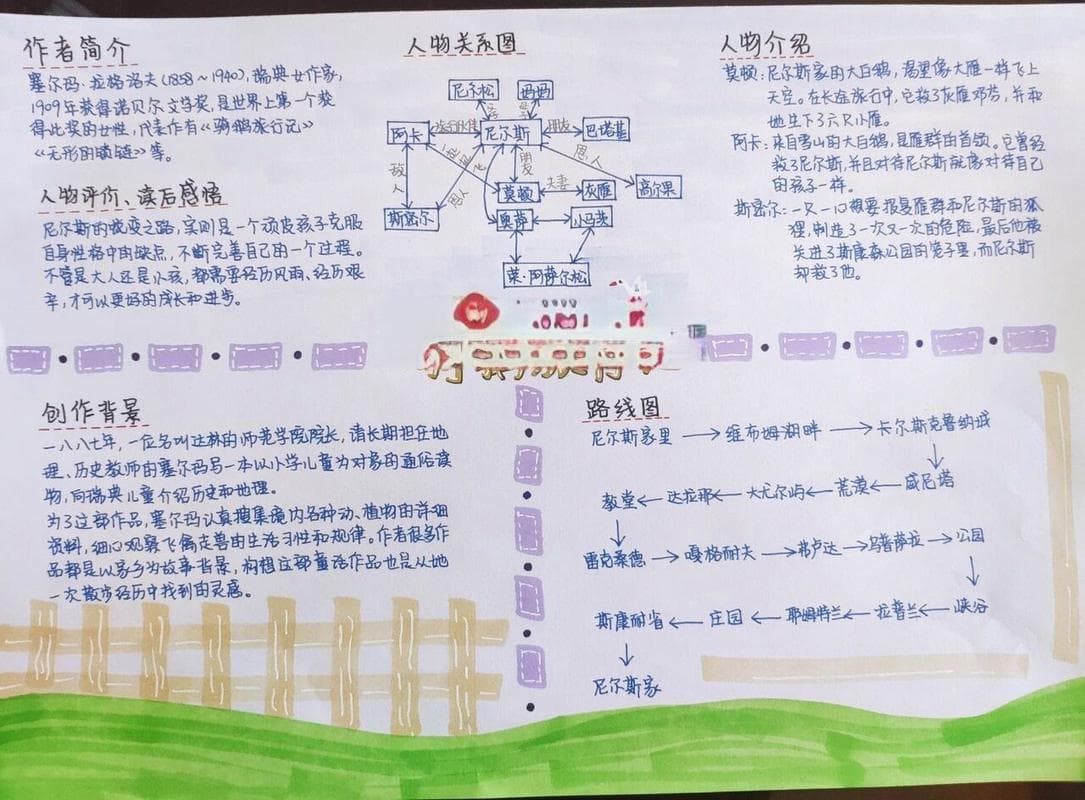 作者简介
塞尔玛·拉格洛夫(1858~1940),瑞典女作家,
1909年获得诺贝尔文学奖,是世界上第一个获
得此奖的女性,代表作有《骑鹅旅行记》
《无形的锁链》等。
人物评价、读后感悟
尼尔斯的蜕变之路,实则是一个顽皮孩子克服
自身性格中的缺点,不断完善自己的一个过程。
不管是大人还是小孩,都需要经历风雨、经历艰
辛,才可以更好的成长和进步。
人物关系图
尼尔松
妈妈
阿卡
旅行伙伴
尼尔斯
朋友
巴塔基
敌人
恩人
朋友
恩人
莫顿
夫妻
灰雁
高尔果
斯密尔
奥萨
小马茨
莱·阿萨尔松
人物介绍
莫顿:尼尔斯家的大白鹅,渴望像大雁一样飞上
天空。在长途旅行中,它救了灰雁邓芬,并和
她生下了六只小雁。
阿卡:来自雪山的大白鹅,是雁群的首领。它曾经
救了尼尔斯,并且对待尼尔斯就像对待自己
的孩子一样。
斯密尔:一只一心想要报复雁群和尼尔斯的狐
狸,制造了一次又一次的危险,最后他被
关进了斯康森公园的笼子里,而尼尔斯
却救了他。
创作背景
一八八七年,一位名叫达林的师范学院院长,请长期担任地
理、历史教师的塞尔玛写一本以小学儿童为对象的通俗读
物,向瑞典儿童介绍历史和地理。
为了这部作品,塞尔玛认真搜集境内各种动、植物的详细
资料,细心观察飞禽走兽的生活习性和规律。作者很多作
品都是以家乡为故事背景,构想这部童话作品也是从她
一次散步经历中找到的灵感。
路线图
尼尔斯家里→维布姆湖畔→卡尔斯克鲁纳城
教堂←达拉那←大尤尔屿←荒漠←威尼塔
雷克桑德→嘎格耐夫→弗卢达→乌普萨拉→公园
斯康耐省←庄园←耶姆特兰←拉普兰←峡谷
尼尔斯家